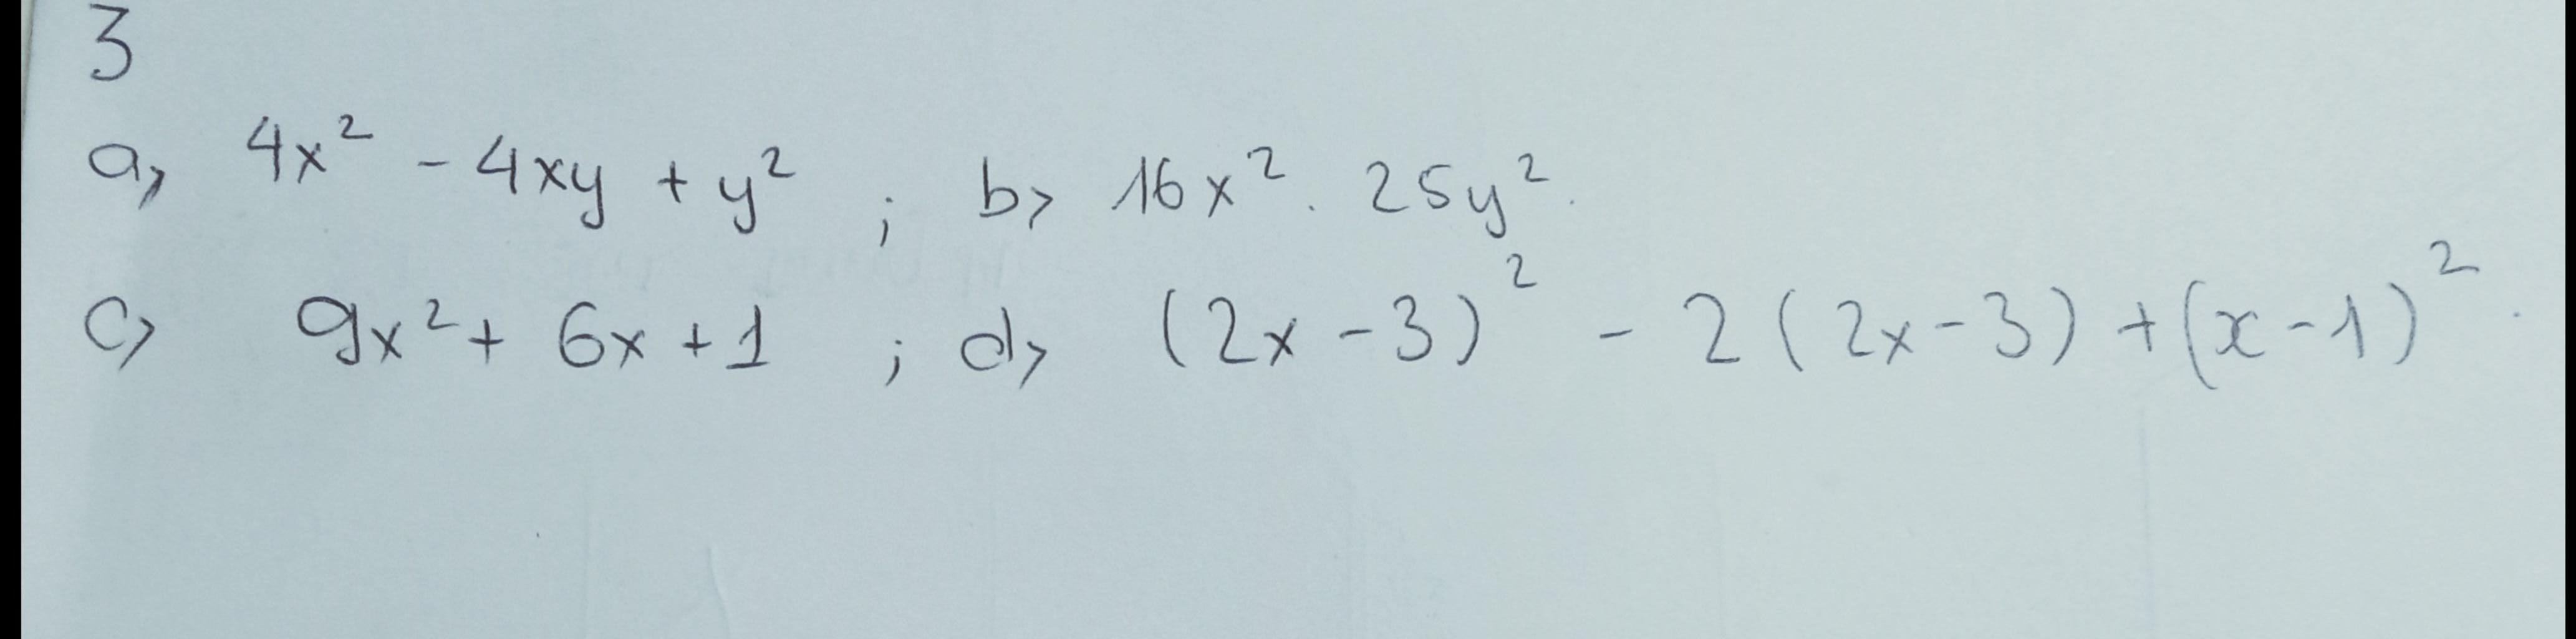 3
a, 4x² - 4xy + y² ; b> 16x² . 25y².
c> 9x² + 6x + 1 ; d> (2x - 3)² - 2(2x - 3) + (x - 1)².